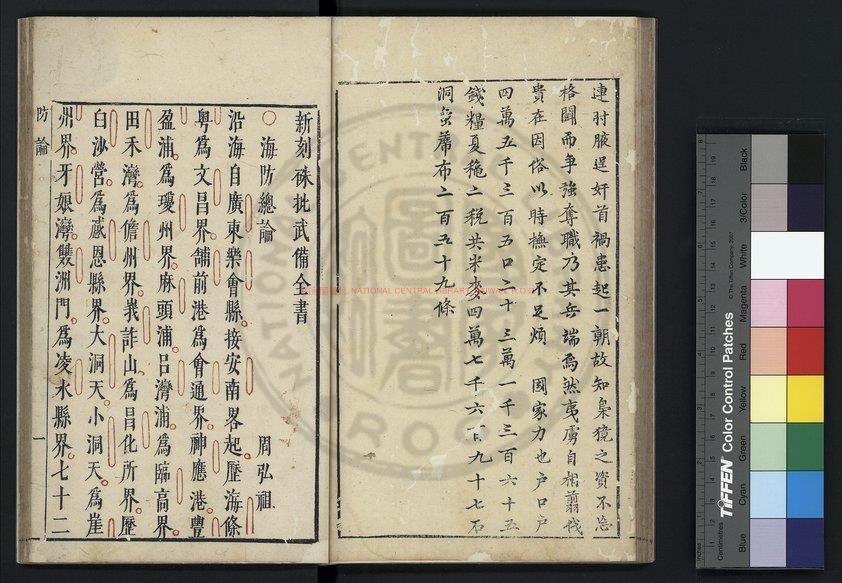 連肘腋逞奸首禍患起一朝故知梟獍之資不忘
格鬬而爭強奪職乃其兵端焉然夷虜自相翦伐
貴在因俗以時撫定不足煩　國家力也戶口戶
四萬五千三百五口二十三萬一千三百六十五
錢糧夏稅二稅共米麥四萬七千六百九十七石
洞蠻蔴布二百五十九條
新刻硃批武備全書
○海防總論　周弘祖
沿海自廣東樂會縣接安南畧起歷海條
粵為文昌界舖前港為會通界神應港豐
盈浦為瓊州界麻頭浦呂灣浦為臨高界
田禾灣為儋州界義詐山為昌化所界歷
白沙營為感恩縣界大洞天小洞天為崖
州界牙娘灣雙洲門為凌水縣界七十二
防論
一
NATIONAL CENTRAL LIBRARY
TIFFEN Color Control Patches
© The Tiffen Company, 2007
Centimetres
Inches
Blue
Cyan
Green
Yellow
Red
Magenta
White
3/Color
Black